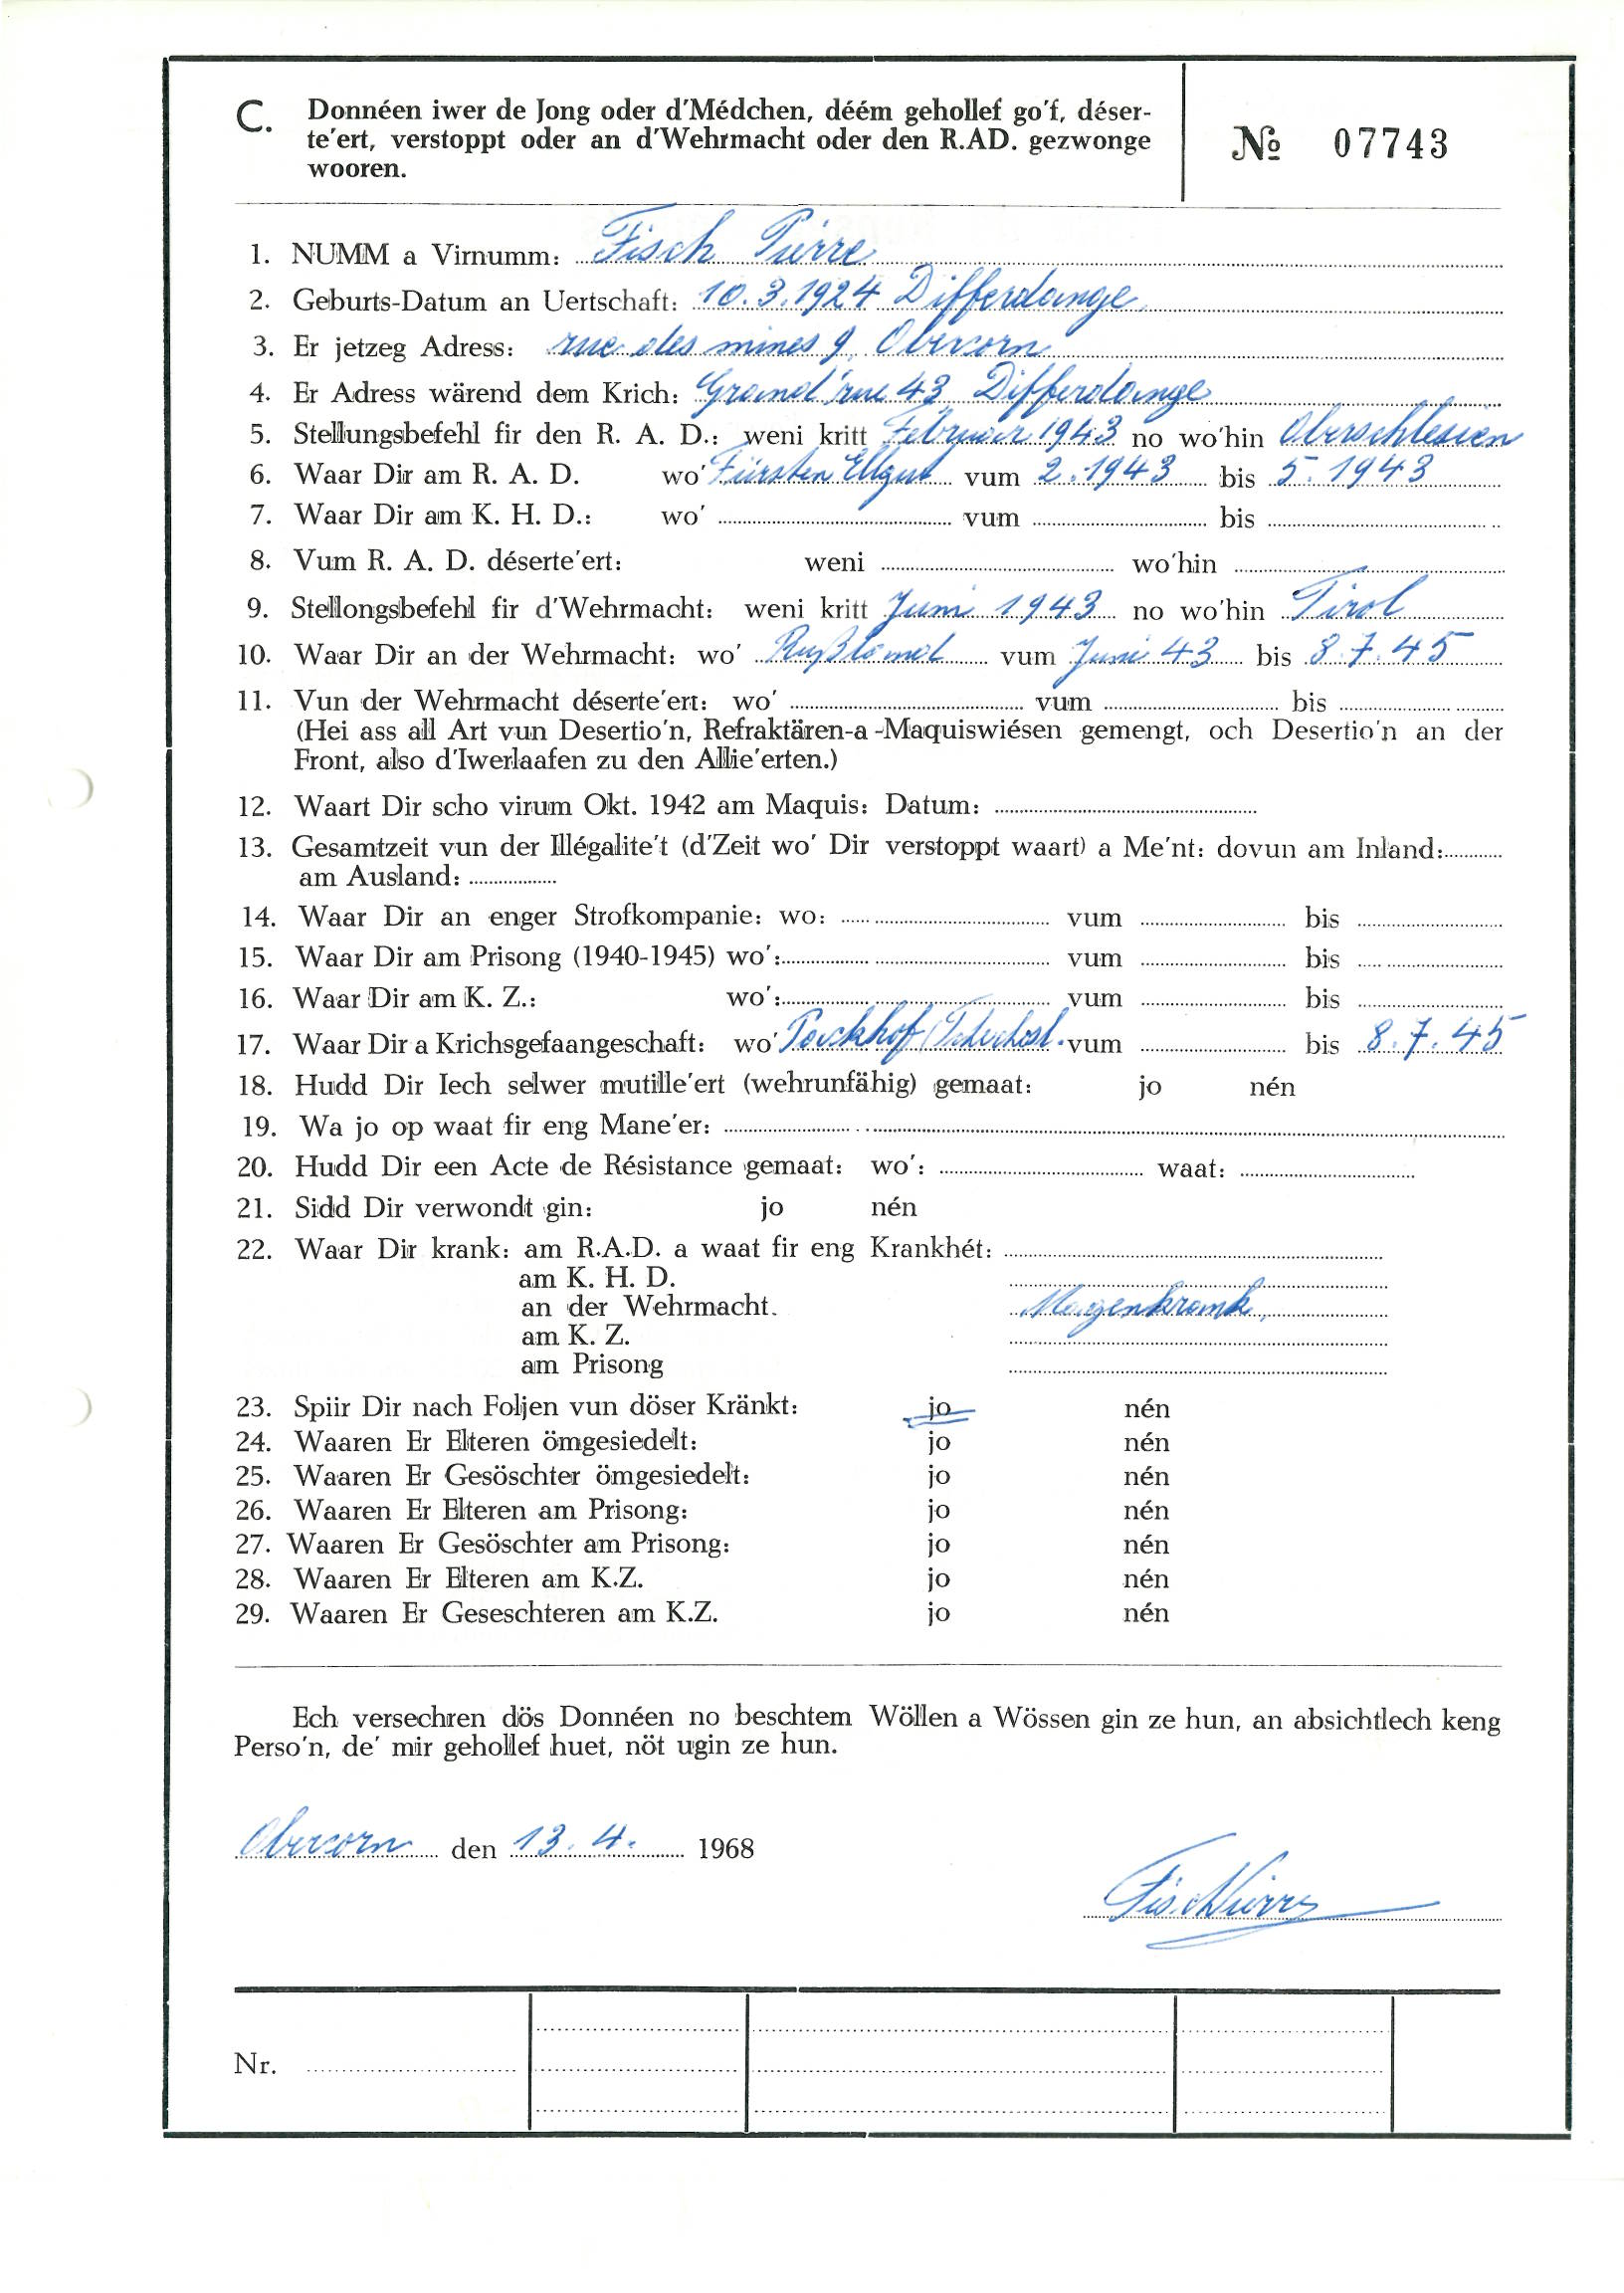 C. Donnéen iwer de Jong oder d'Médchen, déém gehollef go'f, déser-
te'ert, verstoppt oder an d'Wehrmacht oder den R.AD. gezwonge
wooren.
№ 07743
1. NUMM a Virnumm: Fisch Pierre
2. Geburts-Datum an Uertschaft: 10.3.1924 Differdange
3. Er jetzeg Adress: rue des mines 9, Obercorn
4. Er Adress wärend dem Krich: Grand'rue 43 Differdange
5. Stellungsbefehl fir den R. A. D.: weni kritt Februar 1943 no wo'hin Oberschlesien
6. Waar Dir am R. A. D. wo' Fürsten Ellgut vum 2.1943 bis 5.1943
7. Waar Dir am K. H. D.: wo' vum bis
8. Vum R. A. D. déserte'ert: weni wo'hin
9. Stellongsbefehl fir d'Wehrmacht: weni kritt Juni 1943 no wo'hin Tirol
10. Waar Dir an der Wehrmacht: wo' Rußland vum Juni 43 bis 8.7.45
11. Vun der Wehrmacht déserte'ert: wo' vum bis
(Hei ass all Art vun Desertio'n, Refraktären-a-Maquiswiésen gemengt, och Desertio'n an der
Front, also d'Iwerlaafen zu den Allie'erten.)
12. Waart Dir scho virum Okt. 1942 am Maquis: Datum:
13. Gesamtzeit vun der Illégalite't (d'Zeit wo' Dir verstoppt waart) a Me'nt: dovun am Inland:
am Ausland:
14. Waar Dir an enger Strofkompanie: wo: vum bis
15. Waar Dir am Prisong (1940-1945) wo': vum bis
16. Waar Dir am K. Z.: wo': vum bis
17. Waar Dir a Krichsgefaangeschaft: wo' vum bis 8.7.45
18. Hudd Dir Iech selwer mutille'ert (wehrunfähig) gemaat: jo nén
19. Wa jo op waat fir eng Mane'er:
20. Hudd Dir een Acte de Résistance gemaat: wo': waat:
21. Sidd Dir verwondt gin: jo nén
22. Waar Dir krank: am R.A.D. a waat fir eng Krankhét:
am K. H. D.
an der Wehrmacht. Magenkrank,
am K. Z.
am Prisong
23. Spiir Dir nach Foljen vun döser Kränkt: jo nén
24. Waaren Er Elteren ömgesiedelt: jo nén
25. Waaren Er Gesöschter ömgesiedelt: jo nén
26. Waaren Er Elteren am Prisong: jo nén
27. Waaren Er Gesöschter am Prisong: jo nén
28. Waaren Er Elteren am K.Z. jo nén
29. Waaren Er Geseschteren am K.Z. jo nén
Ech versechren dös Donnéen no beschtem Wöllen a Wössen gin ze hun, an absichtlech keng
Perso'n, de' mir gehollef huet, nöt ugin ze hun.
Obercorn den 13.4. 1968
Fisch Pierre
Nr.